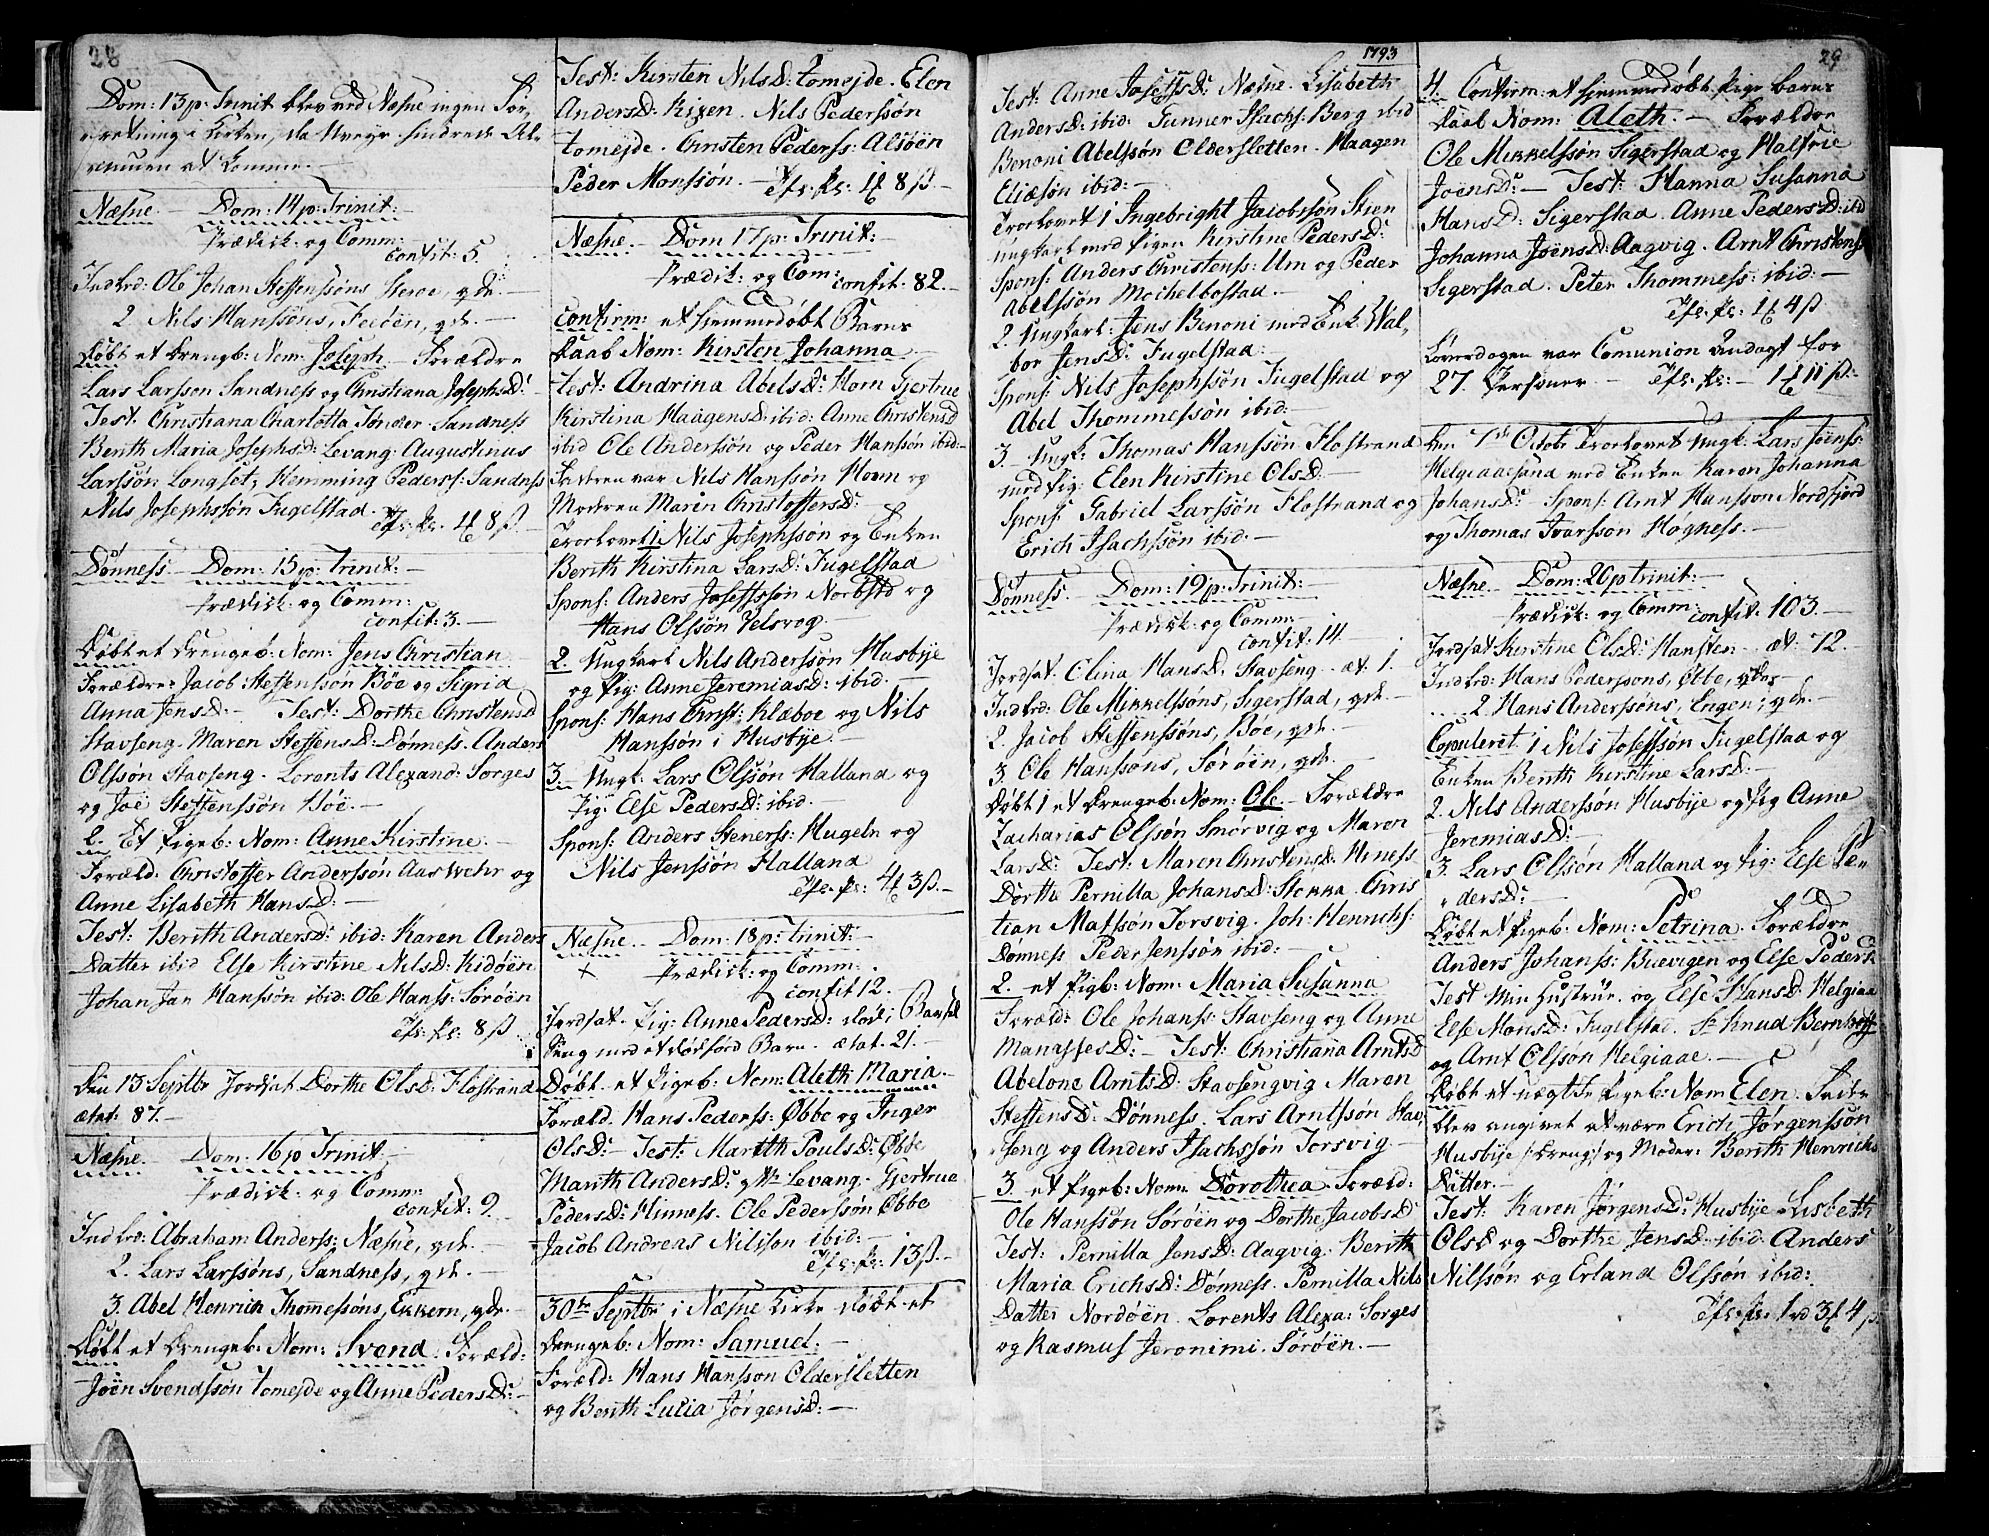 28
Dom: 13 p: Trinit blev ved Næsne ingen For,
retning i Kirken, da Uveyr hindrede Al,
muen at komme. —
Næsne. — Dom: 14 p: Trinit: —
Prædik: og Comm:
confit: 5.
Indled: Ole Johan Steffenssöns
2. Nils Hanssöns, —
Döbt et Drengeb: Nom: Joseph — Forældre
Lars Larsson Sandness og Christiana Josephsd:
Test: Christiana Charlotta Tönder Sandness
Berith Maria Josephsd: Levang: Augustinus
Larssön Longset, Hemming Pederss: Sandness
Nils Josephssön Fugelstad. —
8 ß —
Dönness — Dom: 15 p: Trinit: —
Prædik: og Comm:
confit: 3. —
Döbt et Drengeb: Nom: Jens Christian
Forældre: Jacob Steffenssön Böe og Sigrid
Anna Jensd: — Test: Dorthe Christensd
Stavseng. Maren Steffensd: Dönness. Anders
Olssön Stavseng. Lorents Alexand: Sorges
og Joe Steffenssön Böe. —
2. Et Pigeb: Nom: Anne Kirstine. —
Foræld: Christoffer Anderssön Aaswehr og
Anne Lisabeth Hansd: —
Test: Berith Andersd: ibid: Karen Anders
Datter ibid Else Kirstine Nilsd: Kidöen
Johan Jan Hanssön ibid: Ole Hanss: Söröen
8 ß
Den 13 Septbr Jordsat Dorthe Olsd: Flostrand
ætat: 87. —
Næsne. Dom: 16 p Trinit —
Prædik: og Comm
confit: 9
Indled: Abraham Anderss: Næsne,
2. Lars Larssöns, Sandness,
3. Abel Henrich Thommessöns, Ekkern,
Döbt et Drengeb: Nom: Svend. Foræld:
Joen Svendssön Tomejde og Anne Pedersd: —
Test: Kirsten Nilsd: Tomejde. Elen
Andersd: Kixen. Nils Pederssön
Tomejde. Christen Pederss: Alsöen
Peder Monssön. — 8 ß. —
Næsne. Dom 17 p: Trinit: —
Prædik: og Com: confit: 82. —
Confirm: et Hjemmedöbt Barns
Daab Nom: Kirsten Johanna
Test: Andrina Abelsd: Hom Gjertrue
Kirstina Haagensd: ibid: Anne Christensd
ibid Ole Anderssön og Peder Hanssön ibid: —
Fadren var Nils Hanssön Hom og
Modren Maren Christoffersd:
Trorlovet 1 Nils Josephssön og Enken
Berith Kirstina Larsd: Fugelstad
Spons: Anders Joseffssön Norbstd og
Hans Olssön Velsvog. —
2. Ungkarl Nils Anderssön Husbije
og Pig: Anne Jeremiasd: ibid. —
Spons: Hans Christ: Klæboe og Nils
Hanssön i Husbije —
3. Ungk: Lars Olssön Halland og
Pig: Else Pedersd: ibid. —
Spons: Anders Stenerss: Hugeln og
Nils Jenssön Halland
3 ß. —
Næsne. Dom: 18 p: Trinit: —
× Prædik: og Comm:
confit 12. —
Jordsat. Pig: Anne Pedersd: död i Barsel
Seng med et dödföd Barn. ætat. 21. —
Döbt. et Pigeb: Nom: Aleth Maria. —
Foræld. Hans Pederss: Øbbe og Inger
Olsd: — Test: Marith Poulsd: Øbbe
Marith Andersd: Levang. Gjertrue
Pedersd: Hinness. Ole Pederssön Øbbe
Jacob Andreas Nilsson ibid: —
13 ß. —
30te Septbr i Næsne Kirke döbt et
Drengeb: Nom: Samuel: —
Foræld: Hans Hansson Oldersletten
og Berith Lucia Jörgensd: —
1793
Test: Anne Joseffsd: Næsne. Lisabeth
Andersd: ibid: Gunner Isachs: Berg ibid
Benoni Abelssön Oldersletten. Haagen
Eliæsön ibid: —
Trorlovet 1 Ingebright Jacobssön Stien
Ungkarl med Pigen Kirstine Pedersd:
Spons: Anders Christenss: Um og Peder
Abelssön Mochelbostad. —
2. Ungkarl: Jens Benoni med Enk: Wal,
bor Jensd: Fugelstad:
Spons: Nils Josephssön Fugelstad og
Abel Thommessön ibid: —
3. Ungk: Thomas Hanssön Flostrand
med Pig: Elen Kirstine Olsd: —
Spons: Gabriel Larssön Flostrand og
Erich Isachssön ibid. —
Dönness. Dom: 19 p: Trinit: —
Prædik: og Comm —
confit. 14. —
Jordsat. Elina Hansd: Stavseng. æt 1.
Indled: Ole Mikkelssöns, Sigerstad,
2. Jacob Steffenssöns, Böe, —
3. Ole Hanssöns, Söröen, —
Döbt 1 et Drengeb: Nom: Ole — Forældre
Zacharias Olssön Smörvig og Maren
Larsd: Test: Maren Christensd: Hiness
Dorthe Pernilla Johansd: Stokka. Chris
tian Matssön Torsvig. Joh: Henrichs:
Dönness Peder Jenssön ibid: —
2. et Pigb: Nom: Maria Susanna
Foræld: Ole Johans: Stavseng og Anne
Manassesd: — Test: Christiana Arntsd
Abelone Arntsd: Stavsengvig Maren
Steffensd: Dönness. Lars Arntssön Stav,
seng og Anders Isachssön Torsvig —
3. et Pigeb: Nom. Dorothea. Foræld:
Ole Hanssön Söröen og Dorthe Jacobsd
Test: Pernilla Jensd: Aagvig. Berith
Maria Erichsd: Dönness. Pernilla Nils
Datter Nordöen. Lorents Alexa: Sorges
og Rasmus Jeronimi. Söröen. —
29
4. Confirm: et Hjemmedöbt Pige Barns
Daab Nom: Aleth. — Forældre
Ole Mikkelssön Sigerstad og Halfrie
Joensd: — Test: Hanna Susanna
Hansd: Sigerstad. Anne Pedersd: ibid
Johanna Joensd: Aagvig. Arnt Christens
Sigerstad. Peter Thommess: ibid: —
4 ß
Löverdagen var Comunion Andagt for
27. Personer — 11 ß. —
Den 7de Octobr Trorlovet Ungk: Lars Joenss:
Helgeaaesund med Enken Karen Johanna
Johansd: Spons: Arnt Hansson Nordfjord
og Thomas Ivarsson Hogness. —
Næsne. Dom: 20 p Trinit: —
Prædik: og Comm: confit: 103. —
Jordsat Kirstine Olsd: Hansten. æt: 72. —
Indled: Hans Pederssons, Øbbe,
2. Hans Anderssöns, Engen,
Copuleret 1 Nils Joseffsön Fugelstad og
Enken Berith Kirstine Larsd: —
2. Nils Anderssön Husbije og Pig Anne
Jeremiasd: —
3. Lars Olssön Halland og Pig: Else Pe„
„ dersd:
Döbt et Pigeb: Nom: Petrina. Forældre
Anders Johanss: Buevigen og Else Pedersd:
Test Min Hustrue. og Else Hansd: Helgiaa
Else Monsd: Fugelstad. Sr Knud Bernhoft
og Arnt Olssön Helgiaae. —
Döbt et uægte Pigeb: Nom Elen. Fader
blev angivet at være Erich Jörgenssön
Husbije / Dreng / og Moder: Berith Henrichs
Datter. —
Test: Karen Jörgensd: Husbije Lisbeth
Olsd og Dorthe Jensd: ibid: Anders
Nilssön og Erland Olssön ibid:
4 ß.